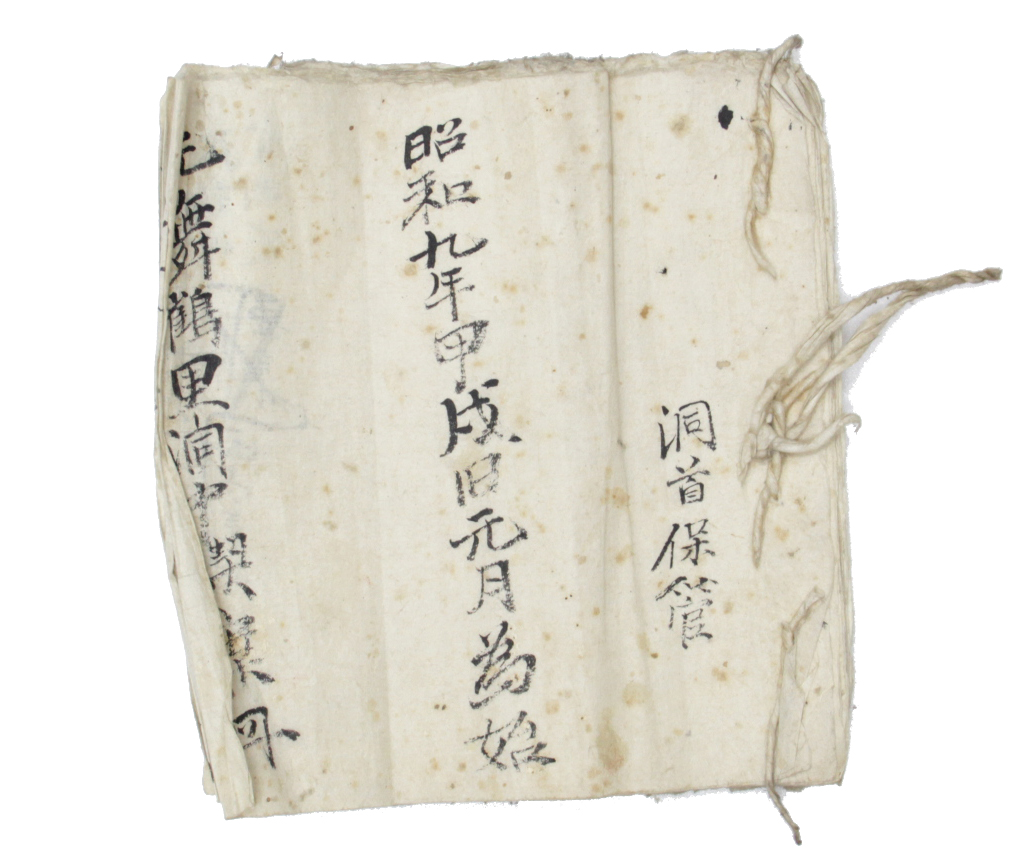 洞首保管
昭和九年甲戌旧元月為始
舞鶴里洞中契案冊